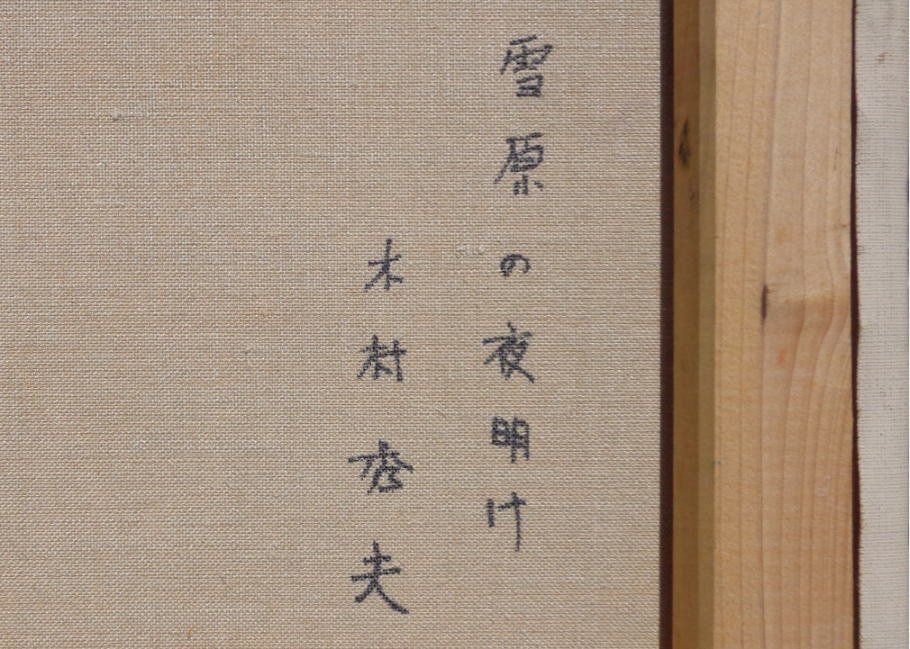 雪原の夜明け
木村夫